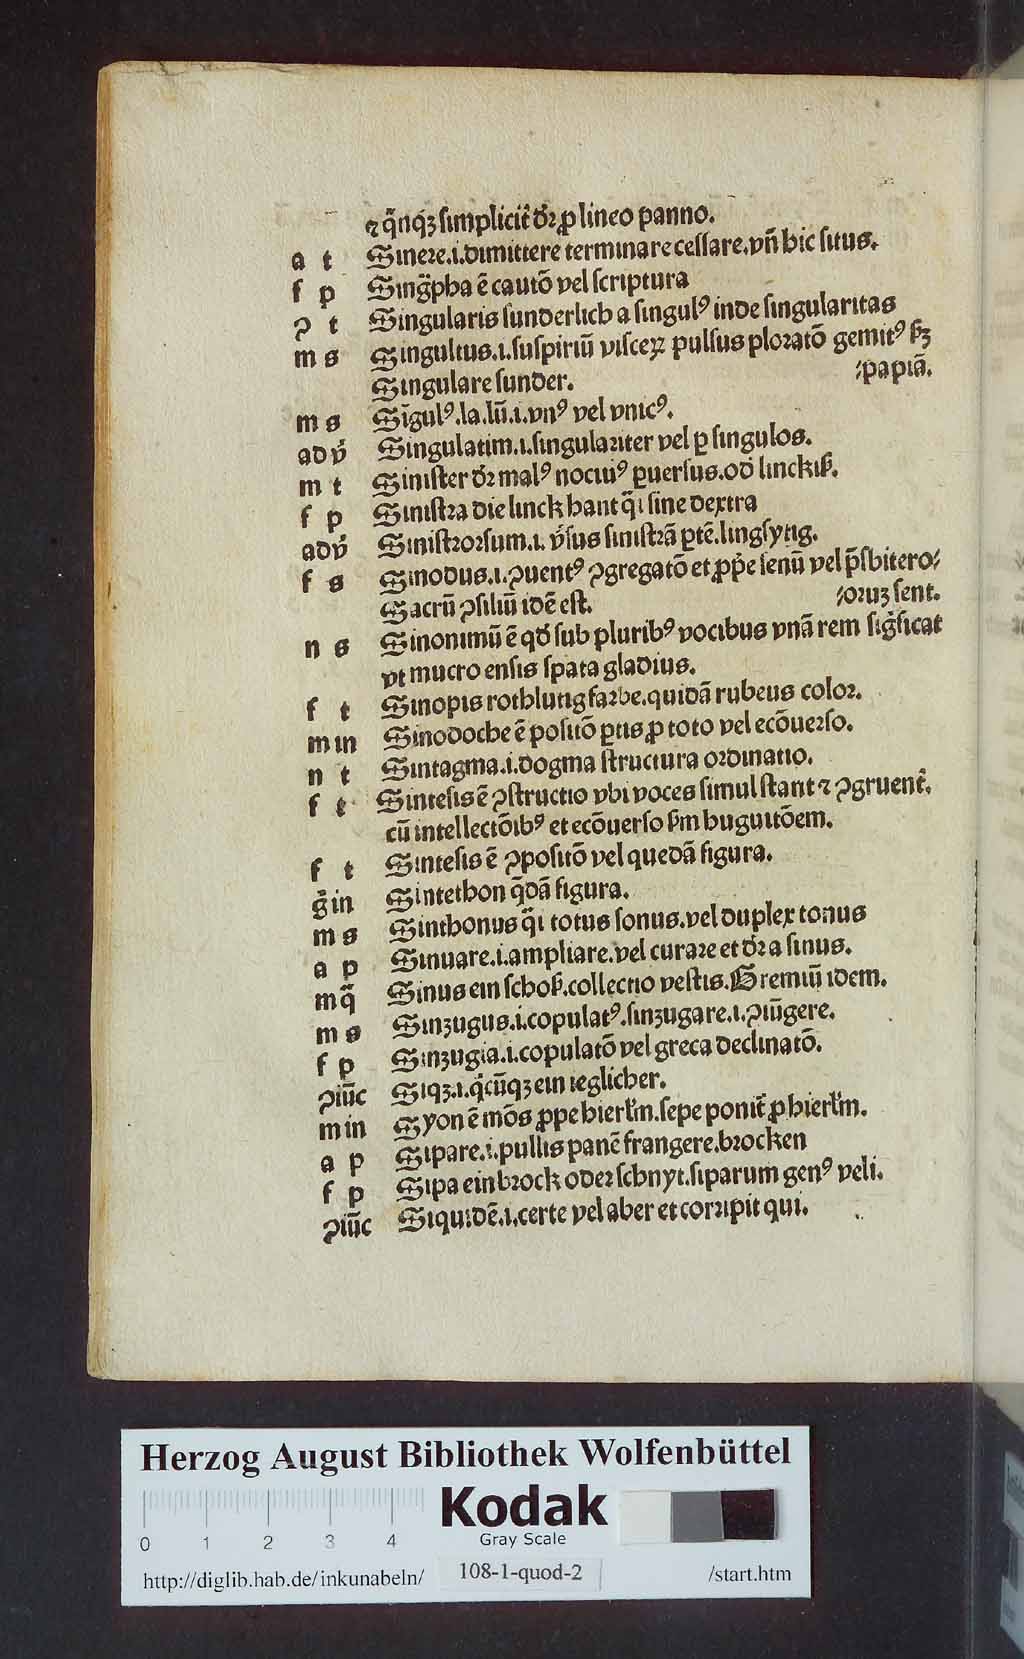 ⁊ q̄nq́ꝫ simplicit̃ dr̃ ꝓ lineo panno.
a t Sinere.i.dimittere terminare cessare.vñ hic situs.
f p Singp̃ha ē cautõ vel scriptura
ꝯ t Singularis sunderlich a singulꝰ inde singularitas
m s Singultus.i.suspiriũ viscerꝝ pulsus ploratõ gemitꝰ ẜꝫ
Singulare sunder. /papiã.
m s Sĩgulꝰ.la.lũ.i.vnꝰ vel vnicꝰ.
adṽ Singulatim.i.singulariter vel ꝑ singulos.
m t Sinister dr̃ malꝰ nociuꝰ ꝑuersus.od̃ linckiß.
f p Sinistra die linck hant q̃i sine dextra
adṽ Sinistrorsum.i. v̾sus sinistrã ꝑtẽ.lingsytig.
f s Sinodus.i.ꝯuentꝰ ꝯgregatõ et ꝓp̃e senũ vel p̃sbitero/
Sacrũ ꝯsiliũ idẽ est. /oruꝫ sent.
n s Sinonimũ ē qd̃ sub pluribꝰ vocibus vnã rem sig̃ficat
vt mucro ensis spata gladius.
f t Sinopis rotblutig farbe.quidã rubeus color.
m in Sinodoche ē positõ ꝑtis ꝓ toto vel ecõuerso.
n t Sintagma.i.dogma structura ordinatio.
f t Sintesis ē ꝯstructio vbi voces simul stant ⁊ ꝯgruent̃.
cũ intellectõibꝰ et ecõuerso ẜm huguitõem.
f t Sintesis ē ꝯpositõ vel quedã figura.
g̃ in Sintethon q̃dã figura.
m s Sinthonus q̃i totus sonus.vel duplex tonus
a p Sinuare.i.ampliare.vel curare et dr̃ a sinus.
m q̃ Sinus ein schoß.collectio vestis.Gremiũ idem.
m s Sinzugus.i.copulatꝰ.sinzugare.i.ꝯiũgere.
f p Sinzugia.i.copulatõ vel greca declinatõ.
ꝯiũc Siqꝫ.i.q̃cũqꝫ ein ieglicher.
m in Syon ē mõs ꝓpe hierlm̃.sepe ponit̃ ꝓ hierlm̃.
a p Sipare.i.pullis panẽ frangere.brocken
f p Sipa ein brock oder schnyt.siparum genꝰ veli.
ꝯiũc Siquidẽ.i.certe vel aber et corripit qui.
Herzog August Bibliothek Wolfenbüttel
Kodak
Gray Scale
0 1 2 3 4
http://diglib.hab.de/inkunabeln/ 108-1-quod-2 /start.htm